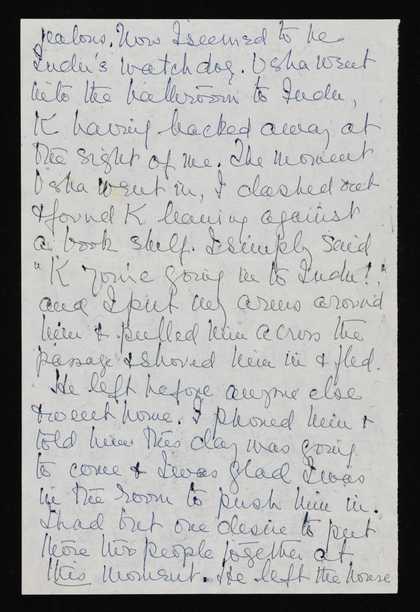 jealous. Now I seemed to be
Indu's watch dog. Usha went
into the bathroom to Indu,
K having backed away at
the sight of me. The moment
Usha went in, I dashed out
& found K leaning against
a book shelf. I simply said
"K you're going in to Indu!"
and I put my arms around
him & pulled him across the
passage & shoved him in & fled.
He left before anyone else
& went home. I phoned him &
told him this day was going
to come & I was glad I was
in the room to push him in.
I had but one desire to put
those two people together at
this moment. He left the house